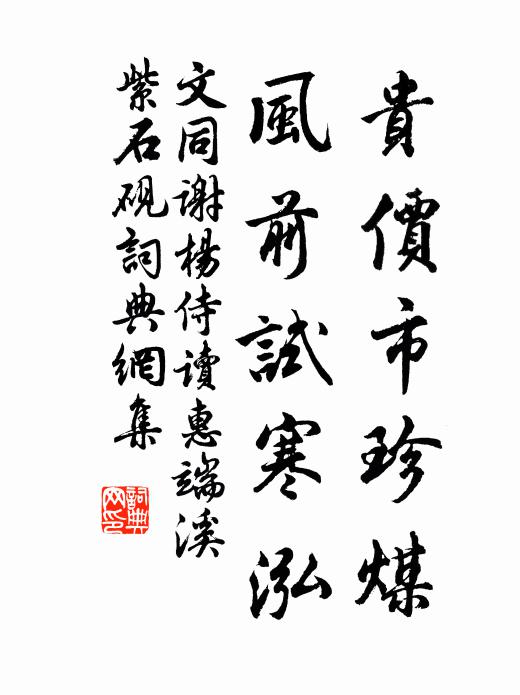 貴價市珍煤
風前試寒泓
文同謝楊侍讀惠端溪
紫石硯詞典網集
詞典網印